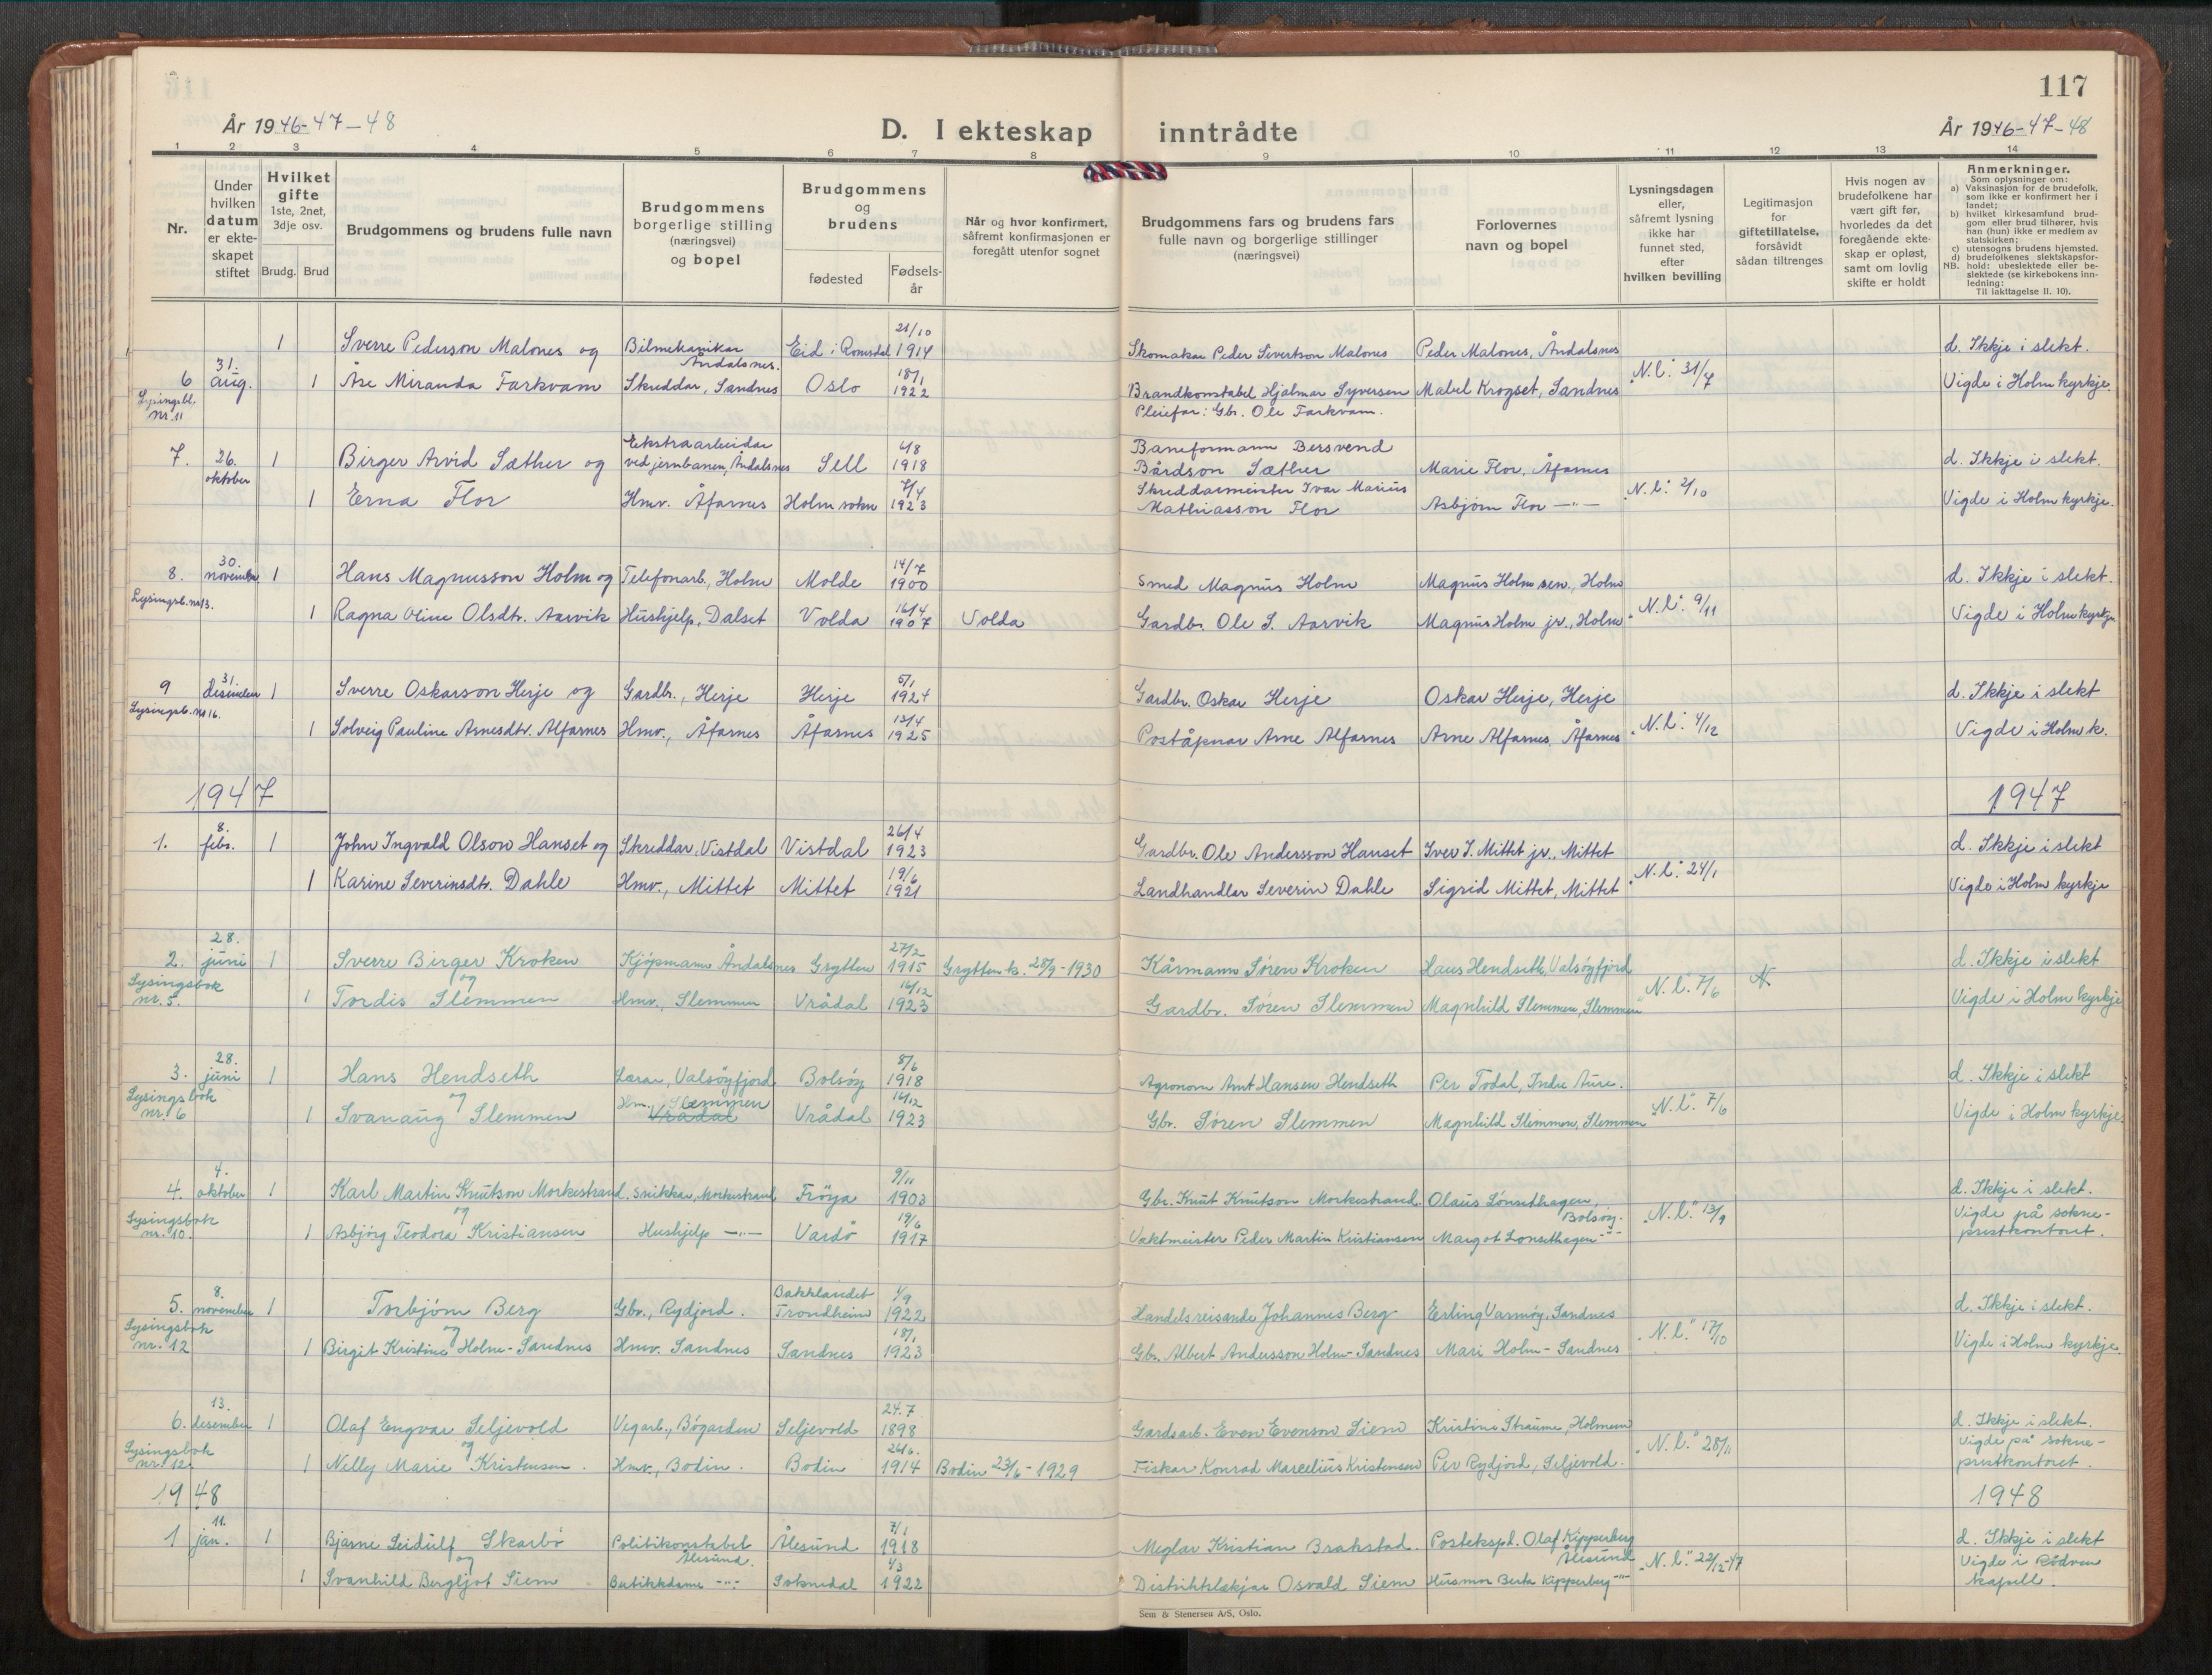 117
År 1946-47-48
D. I ekteskap inntrådte
År 1946-47-48
1 2 3 4 5 6 7 8 9 10 11 12 13 14
Nr.
Under hvilken datum er ekte-skapet stiftet
Hvilket gifte
1ste, 2net, 3dje osv.
Brudg. Brud
Brudgommens og brudens fulle navn
Brudgommens borgerlige stilling (næringsvei) og bopel
Brudgommens og brudens
fødested
Fødsels-år
Når og hvor konfirmert, såfremt konfirmasjonen er foregått utenfor sognet
Brudgommens fars og brudens fars fulle navn og borgerlige stillinger (næringsvei)
Forlovernes navn og bopel
Lysningsdagen eller, såfremt lysning ikke har funnet sted, efter hvilken bevilling
Legitimasjon for giftetillatelse, forsåvidt sådan tiltrenges
Hvis nogen av brudefolkene har vært gift før, hvorledes da det foregående ekte-skap er opløst, samt om lovlig skifte er holdt
Anmerkninger.
Som oplysninger om:
a) Vaksinasjon for de brudefolk, som ikke er konfirmert her i landet;
b) hvilket kirkesamfund brud-gom eller brud tilhører, hvis han (hun) ikke er medlem av statskirken;
c) utensogns brudens hjemsted.
d) brudefolkenes slektskapsfor-hold: ubeslektede eller be-slektede (se kirkebokens inn-ledning:
NB.
Til iakttagelse II. 10).
1 Sverre Pederson Malones og Bilmekanikar Åndalsnes. Eid i Romsdal 21/10 1914 Skomakar Peder Sivertson Malones Peder Malones, Åndalsnes d. Ikkje i slekt.
6 31. aug. 1 Åse Miranda Farkvam Skreddar, Sandnes Oslo 18/1 1922 Brandkonstabel Hjalmar Syversen Mabel Krogset, Sandnes "N.l." 31/7 Vigde i Holm kyrkje.
Lysingsbl. nr. 11 Pleiefar: Gbr. Ole Farkvam.
7. 26. oktober 1 Birger Arvid Sæther og Ekstraarbeidar ved jernbanen, Åndalsnes Sell 4/8 1918 Baneformann Bersvend Bårdson Sæther Marie Flor, Åfarnes d. Ikkje i slekt.
1 Erna Flor Hmv. Åfarnes Holm sokn 7/4 1923 Skreddarmeister Ivar Marius Mathiasson Flor Asbjørn Flor —"— "N.l." 2/10 Vigde i Holm kyrkje.
8. 30. november 1 Hans Magnusson Holm og Telefonarb., Holm Molde 14/7 1900 Smed Magnus Holm Magnus Holm sen., Holm d. Ikkje i slekt.
Lysingsb. nr 13. 1 Ragna Oline Olsdtr. Aarvik Hushjelp, Dalset Volda 16/4 1907 Volda Gardbr. Ole S. Aarvik Magnus Holm jr., Holm "N.l." 9/11 Vigde i Holm kyrkje
9 31. desember 1 Sverre Oskarson Herje og Gardbr., Herje Herje 5/1 1924 Gardbr. Oskar Herje Oskar Herje, Herje d. Ikkje i slekt
Lysingsb. nr 16. 1 Solveig Pauline Arnesdtr. Alfarnes Hmv., Åfarnes Åfarnes 13/4 1925 Poståpnar Arne Alfarnes Arne Alfarnes, Åfarnes "N.l." 4/12 Vigde i Holm k.
1947 1947
1. 8. febr. 1 John Ingvald Olson Hanset og Skreddar, Vistdal Vistdal 26/4 1923 Gardbr. Ole Andersson Hanset Iver J. Mittet jr., Mittet d. Ikkje i slekt
1 Karine Severinsdtr. Dahle Hmv., Mittet Mittet 19/6 1921 Landhandlar Severin Dahle Sigrid Mittet, Mittet "N.l." 24/1 Vigde i Holm kyrkje
2. 28. juni 1 Sverre Birger Kroken og Kjøpmann Åndalsnes Grytten 27/2 1915 Grytten k. 28/9-1930 Kårmann Søren Kroken Hans Hendseth, Valsøyfjord d. Ikkje i slekt
Lysingsbok nr. 5. 1 Tordis Slemmen Hmv., Slemmen Vrådal 16/12 1923 Gardbr. Søren Slemmen Magnhild Slemmen, Slemmen "N.l." 7/6 Vigde i Holm kyrkje
3. 28. juni 1 Hans Hendseth og Lærar, Valsøyfjord Bolsøy 8/6 1918 Agronom Arnt Hansen Hendseth Per Todal, Indre Aure. d. Ikkje i slekt
Lysingsbok nr. 6 1 Svanaug Slemmen Hm. Slemmen Vrådal Vrådal 16/12 1923 Gbr. Søren Slemmen Magnhild Slemmen, Slemmen "N.l." 7/6 Vigde i Holm kyrkje.
4. 4. oktober 1 Karl Martin Knutson Morkestrand og Snikkar, Morkestrand Frøya 9/11 1903 Gbr. Knut Knutson Morkestrand. Olaus Lønsethagen, Bolsøy. d. Ikkje i slekt.
Lysingsbok nr. 10. 1 Asbjørg Teodora Kristiansen Hushjelp —"— Vardø 19/6 1917 Vaktmeister Peder Martin Kristiansen Margot Lønsethagen —"— "N.l." 13/9 Vigde på sokne-prestkontoret.
5. 8. november 1 Torbjørn Berg og Gbr., Rydjord. Bakklandet Trondheim 1/9 1922 Handelsreisande Johannes Berg Erling Varmøy, Sandnes d. Ikkje i slekt.
Lysingsbok nr. 12 1 Birgit Kristine Holm-Sandnes Hmv. Sandnes Sandnes 18/1 1923 Gbr. Albert Andersson Holm-Sandnes Mari Holm-Sandnes "N.l." 17/10 Vigde i Holm kyrkje.
6. 13. desember 1 Olaf Engvar Seljevold og Vegarb., Bøgarden Seljevold 24.7 1898 Gardsarb. Even Evenson Siem Kristine Straume, Holmem d. Ikkje i slekt.
Lysingsbok nr. 12. 1 Nelly Marie Kristensen. Hmv., Bodin. Bodin 26/6. 1914 Bodin 23/6-1929 Fiskar Konrad Marcelius Kristensen Per Rydjord, Seljevold. "N.l." 28/11 Vigde på sokne-prestkontoret.
1948 1948
1 11. jan. 1 Bjarne Seidulf Skarbø og Politikonstabel Ålesund. Ålesund 7/1 1918 Meglar Kristian Brakstad. Posteksp. Olaf Kipperberg Ålesund d. Ikkje i slekt
1 Svanhild Bergljot Siem Butikkdame —"— Soknedal 1/3 1922 Distriktslækjar Osvald Siem Husmor Berta Kipperberg —"— "N.l." 22/12-47 Vigde i Rødven kapell.
Sem & Stenersen A/S, Oslo.